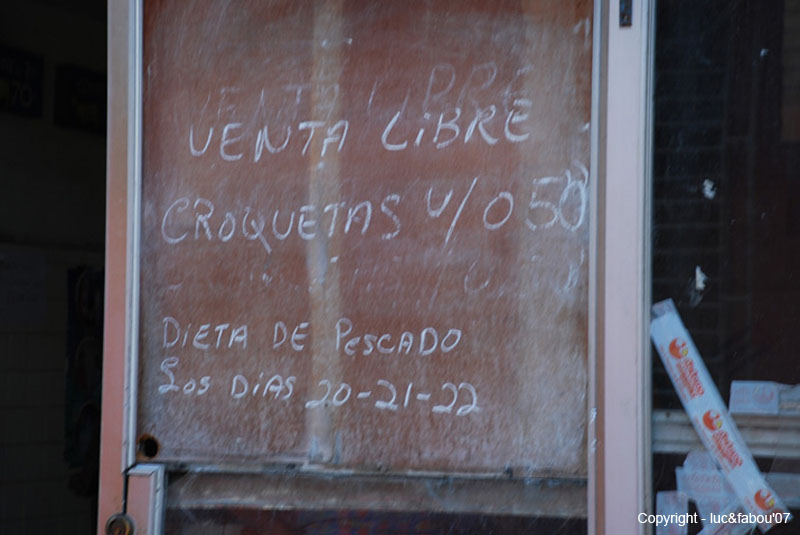 VENTA LIBRE
VENTA LIBRE
CROQUETAS U/0 50
DIETA DE PESCADO
LOS DIAS 20-21-22
Copyright - luc&fabou'07